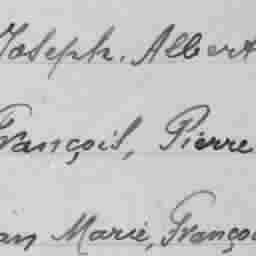 Joseph. Albert
François, Pierre
an Marie, Franço